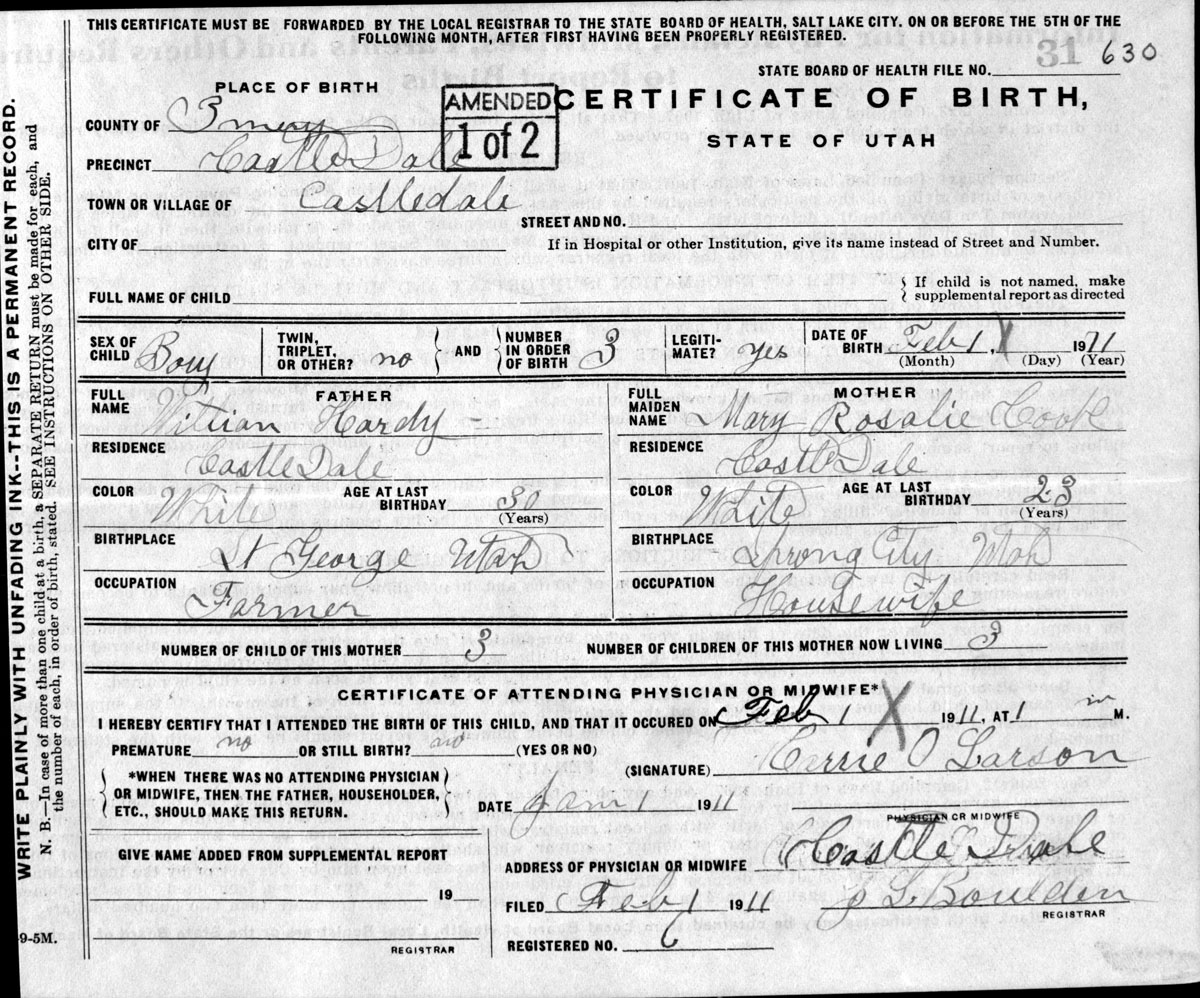 THIS CERTIFICATE MUST BE FORWARDED BY THE LOCAL REGISTRAR TO THE STATE BOARD OF HEALTH, SALT LAKE CITY. ON OR BEFORE THE 5TH OF THE
FOLLOWING MONTH, AFTER FIRST HAVING BEEN PROPERLY REGISTERED.
31 630
STATE BOARD OF HEALTH FILE NO.
PLACE OF BIRTH
AMENDED
1 of 2
CERTIFICATE OF BIRTH,
STATE OF UTAH
COUNTY OF Emery
PRECINCT Castle Dale
TOWN OR VILLAGE OF Castledale
STREET AND NO.
CITY OF
If in Hospital or other Institution, give its name instead of Street and Number.
FULL NAME OF CHILD
If child is not named, make
supplemental report as directed
SEX OF CHILD Boy
TWIN, TRIPLET, OR OTHER? no
AND
NUMBER IN ORDER OF BIRTH 3
LEGITI-MATE? yes
DATE OF BIRTH Feb 1, X 1911
(Month) (Day) (Year)
FATHER
FULL NAME Villian Hardy
RESIDENCE Castle Dale
COLOR White
AGE AT LAST BIRTHDAY 30
(Years)
BIRTHPLACE St George Utah
OCCUPATION Farmer
MOTHER
FULL MAIDEN NAME Mary Rosalie Cook
RESIDENCE Castle Dale
COLOR White
AGE AT LAST BIRTHDAY 23
(Years)
BIRTHPLACE Sprong City, Utah
OCCUPATION Housewife
NUMBER OF CHILD OF THIS MOTHER 3
NUMBER OF CHILDREN OF THIS MOTHER NOW LIVING 3
CERTIFICATE OF ATTENDING PHYSICIAN OR MIDWIFE*
I HEREBY CERTIFY THAT I ATTENDED THE BIRTH OF THIS CHILD, AND THAT IT OCCURED ON Feb 1 X 1911, AT 1 M.
PREMATURE no OR STILL BIRTH? no (YES OR NO)
(SIGNATURE) Carrie O Larson
*WHEN THERE WAS NO ATTENDING PHYSICIAN
OR MIDWIFE, THEN THE FATHER, HOUSEHOLDER,
ETC., SHOULD MAKE THIS RETURN.
DATE Jan 1 1911
PHYSICIAN OR MIDWIFE
GIVE NAME ADDED FROM SUPPLEMENTAL REPORT
19
REGISTRAR
ADDRESS OF PHYSICIAN OR MIDWIFE Castle Dale
FILED Feb 1 1911 L. Boulden
REGISTRAR
REGISTERED NO. 6
9-5M.
WRITE PLAINLY WITH UNFADING INK--THIS IS A PERMANENT RECORD.
N. B.—In case of more than one child at a birth, a SEPARATE RETURN must be made for each, and
the number of each, in order of birth, stated. SEE INSTRUCTIONS ON OTHER SIDE.